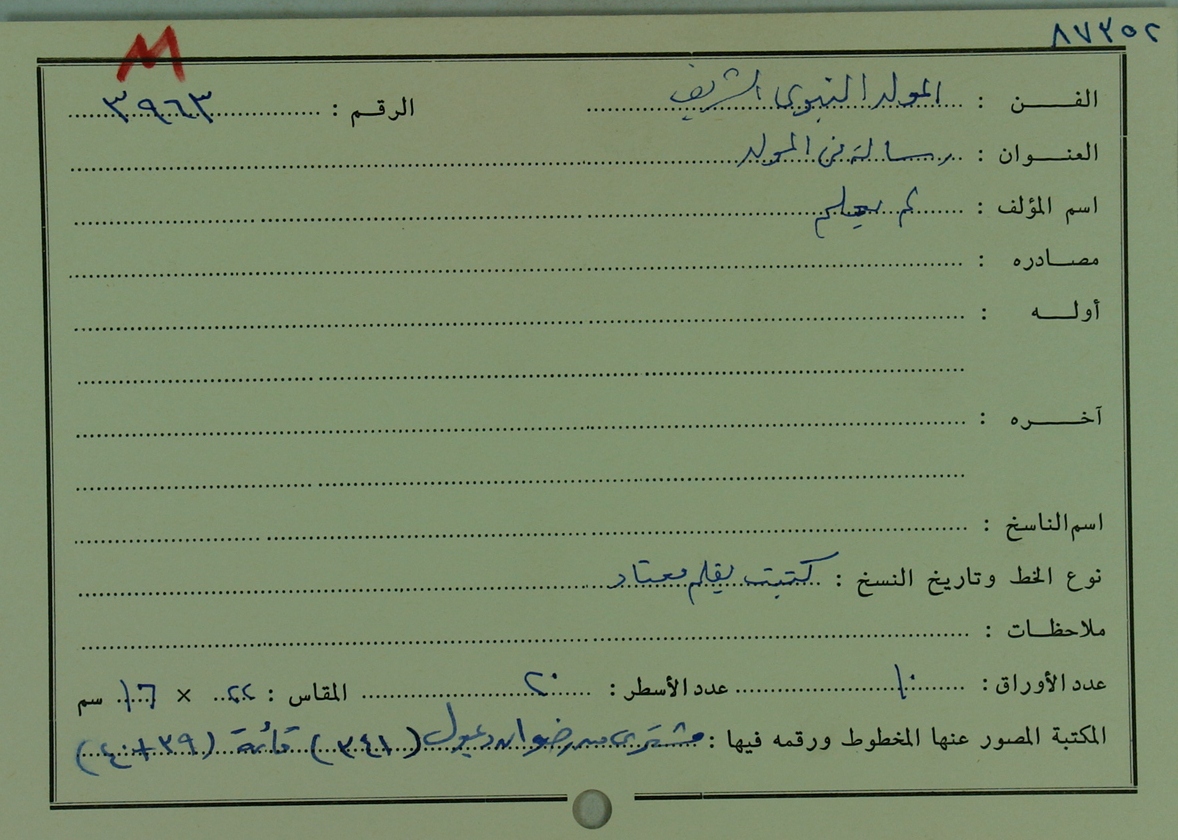 ٨٧٣٥٢
M
الفـن : المولد النبوى الشريف الرقـم : ٣٩٦٣
العنـوان : رسالة فى المولد
اسم المؤلف : لم يعلم
مصـادره :
أولـه :
آخـره :
اسم الناسخ :
نوع الخط وتاريخ النسخ : كتبت بقلم معتاد
ملاحظـات :
عدد الأوراق : ١٠ عدد الأسطر : ٢٠ المقاس : ٢٢ × ١٦ سم
المكتبة المصور عنها المخطوط ورقمه فيها : مشترى من رضوان دعبول (٣٤١) قائمة (٣٩+٤٠)